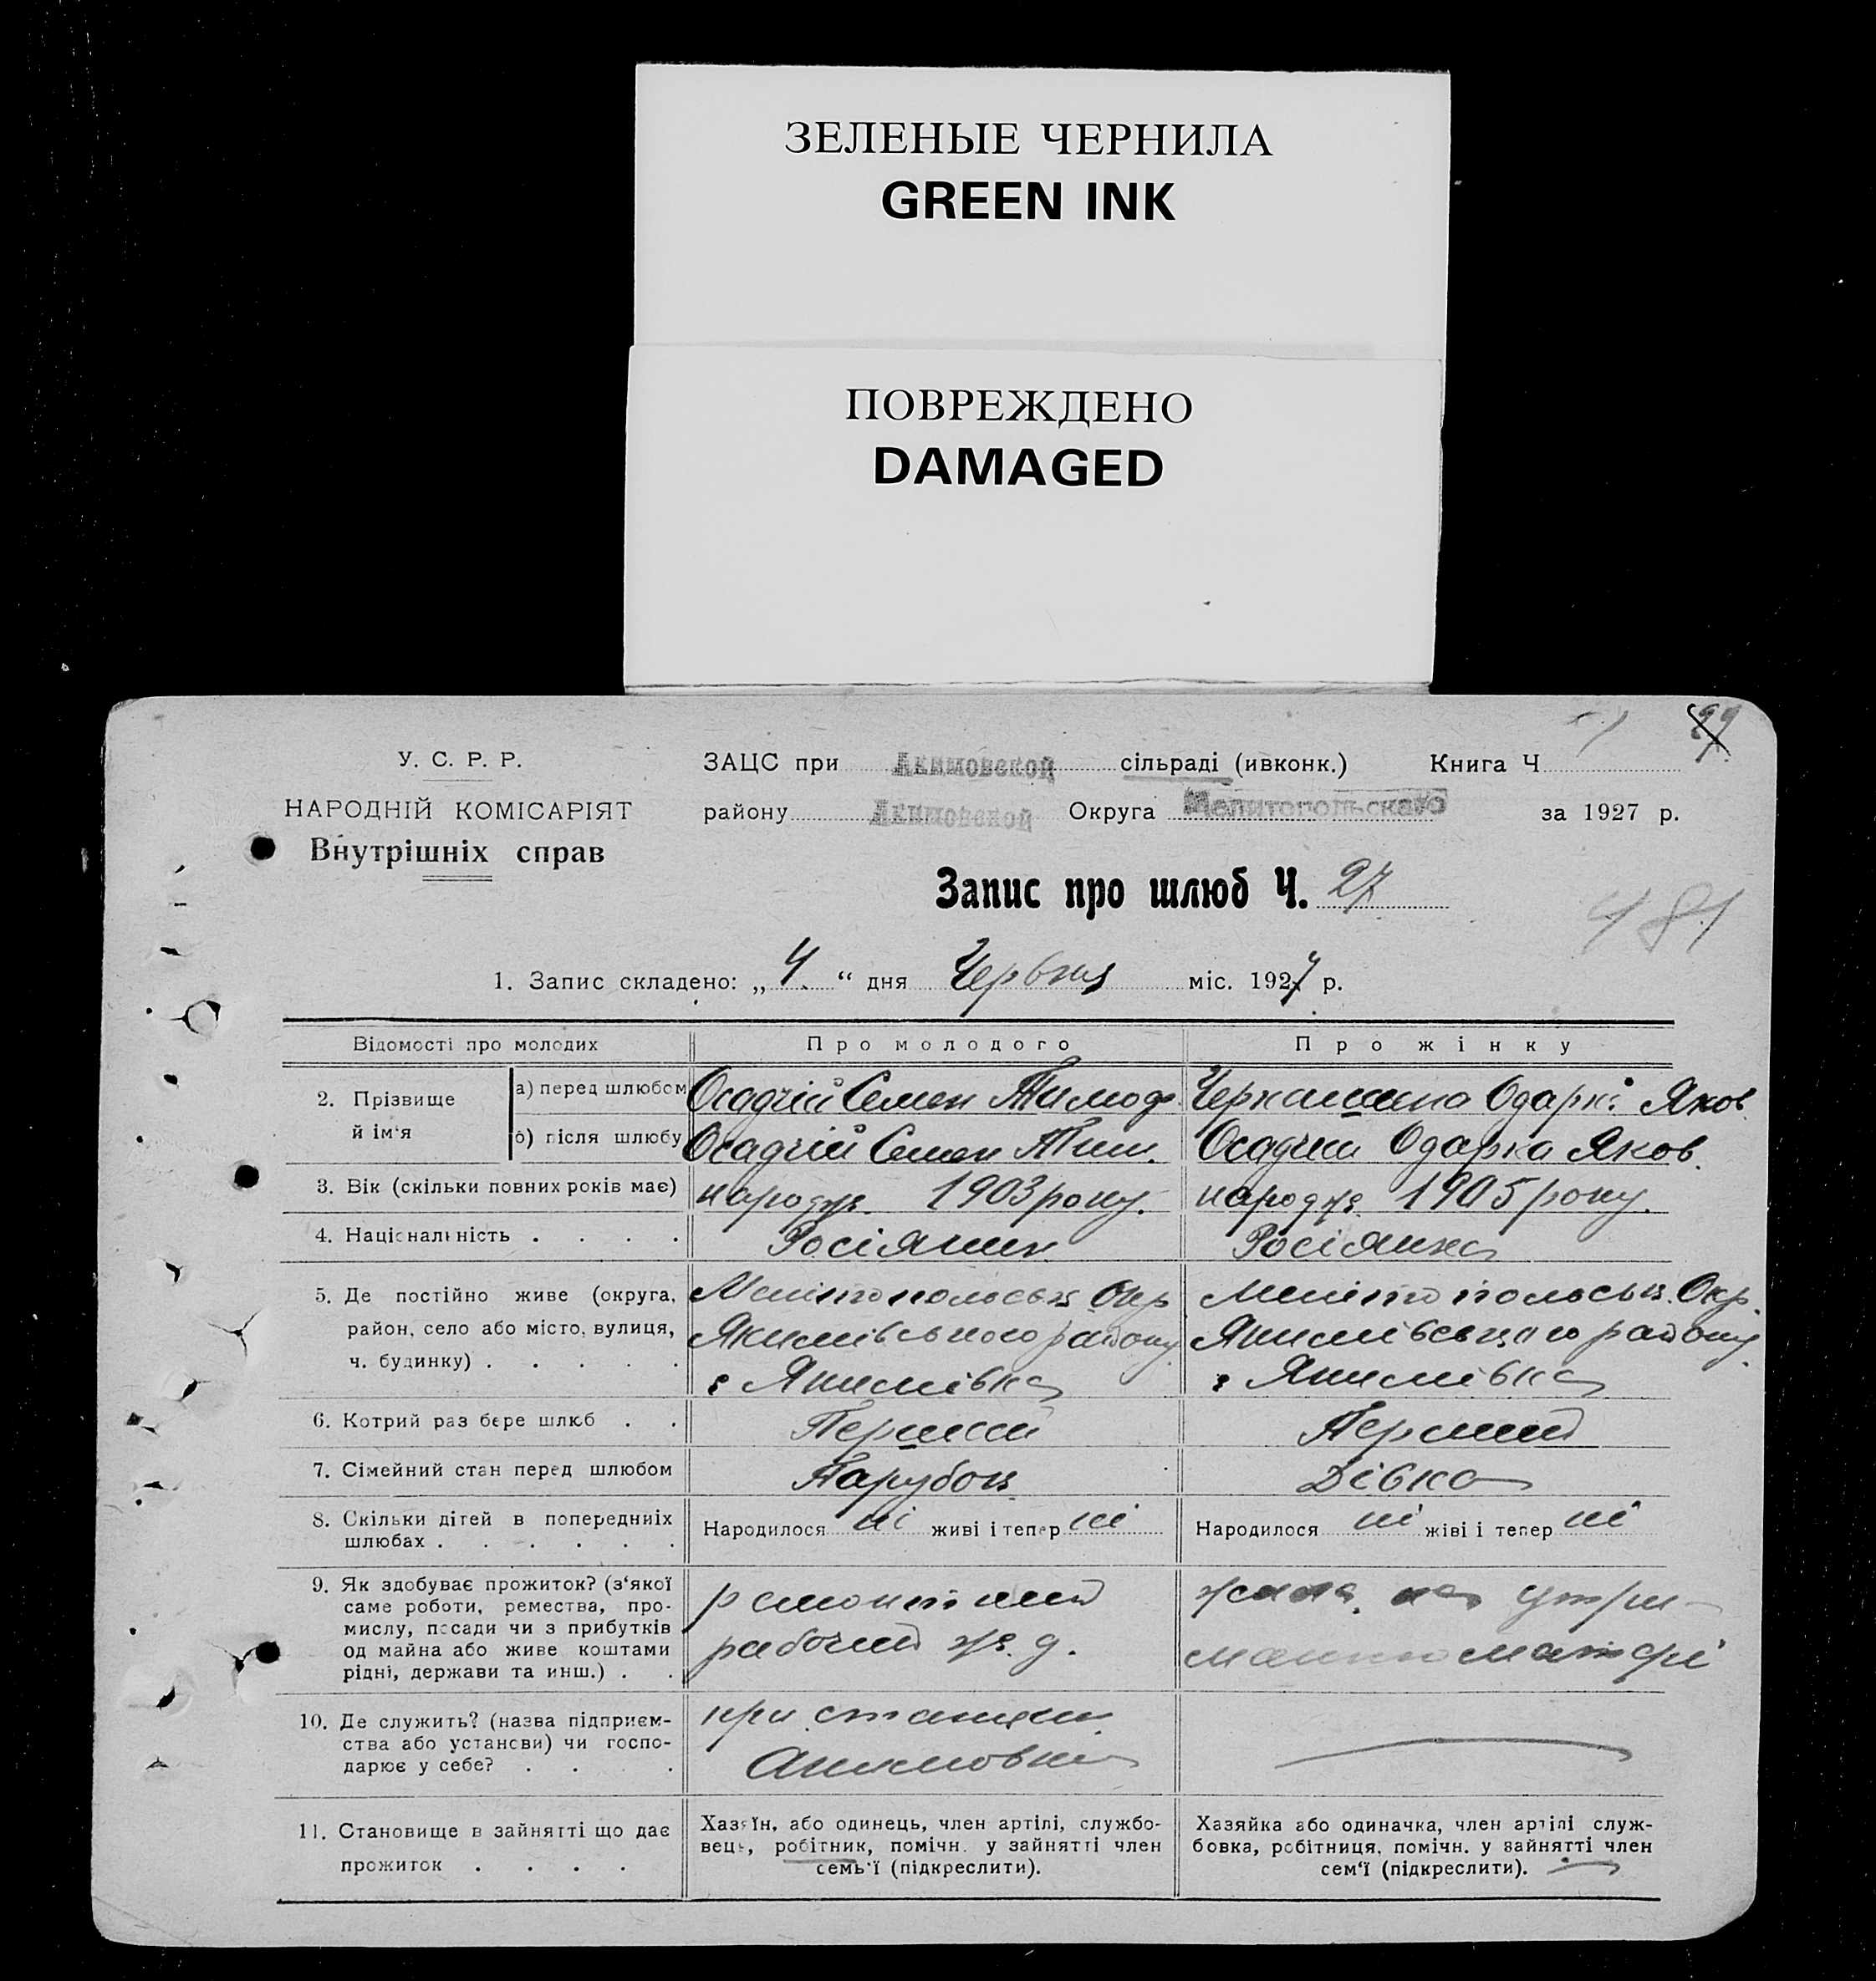 ЗЕЛЕНЫЕ ЧЕРНИЛА
GREEN INK
ПОВРЕЖДЕНО
DAMAGED
29
У. С. Р. Р.
НАРОДНІЙ КОМІСАРІЯТ
Внутрішніх справ
ЗАЦС при Акимовской сільраді (ивконк.) Книга Ч
району Акимовской Округа Мелитопольскаго за 1927 р.
Запис про шлюб Ч. 27
481
1. Запис складено: „ 4. “ дня Червня міс. 1927 р.
Відомості про молодих Про молодого Про жінку
2. Прізвище й ім'я
а) перед шлюбом Осадчій Семен Тимоф. Черкашина Одарка Яков.
б) після шлюбу Осадчій Семен Тим. Осадчий Одарка Яков.
3. Вік (скільки повних років має) народж. 1903 року. народж. 1905 року.
4. Національність . . . . Росіянин Росіянка
5. Де постійно живе (округа, Мелітопольськ. Окр Мелітопольськ. Окр.
район, село або місто, вулиця, Якимівського району Якимівського району
ч. будинку) . . . . . Якимівка Якимівка
6. Котрий раз бере шлюб . . Перший Перший
7. Сімейний стан перед шлюбом Парубок Дівка
8. Скільки дітей в попередниіх
шлюбах . . . . . . Народилося ні живі і тепер ні Народилося ні жіві і тепер ні
9. Як здобуває прожиток? (з'якої
саме роботи, ремества, про-
мислу, посади чи з прибутків
од майна або живе коштами
рідні, держави та инш.) . .
ремонтний
рабочий ж. д.
жила на утри-
манню матері
10. Де служить? (назва підприєм-
ства або установи) чи госпо-
дарює у себе? . . . .
при станции
Акимовка
11. Становище в зайнятті що дає
прожиток . . . .
Хазяїн, або одинець, член артілі, службо-
вець, робітник, помічн. у зайнятті член
семь'ї (підкреслити).
Хазяйка або одиначка, член артілі служ-
бовка, робітниця, помічн. у зайнятті член
сем'ї (підкреслити).